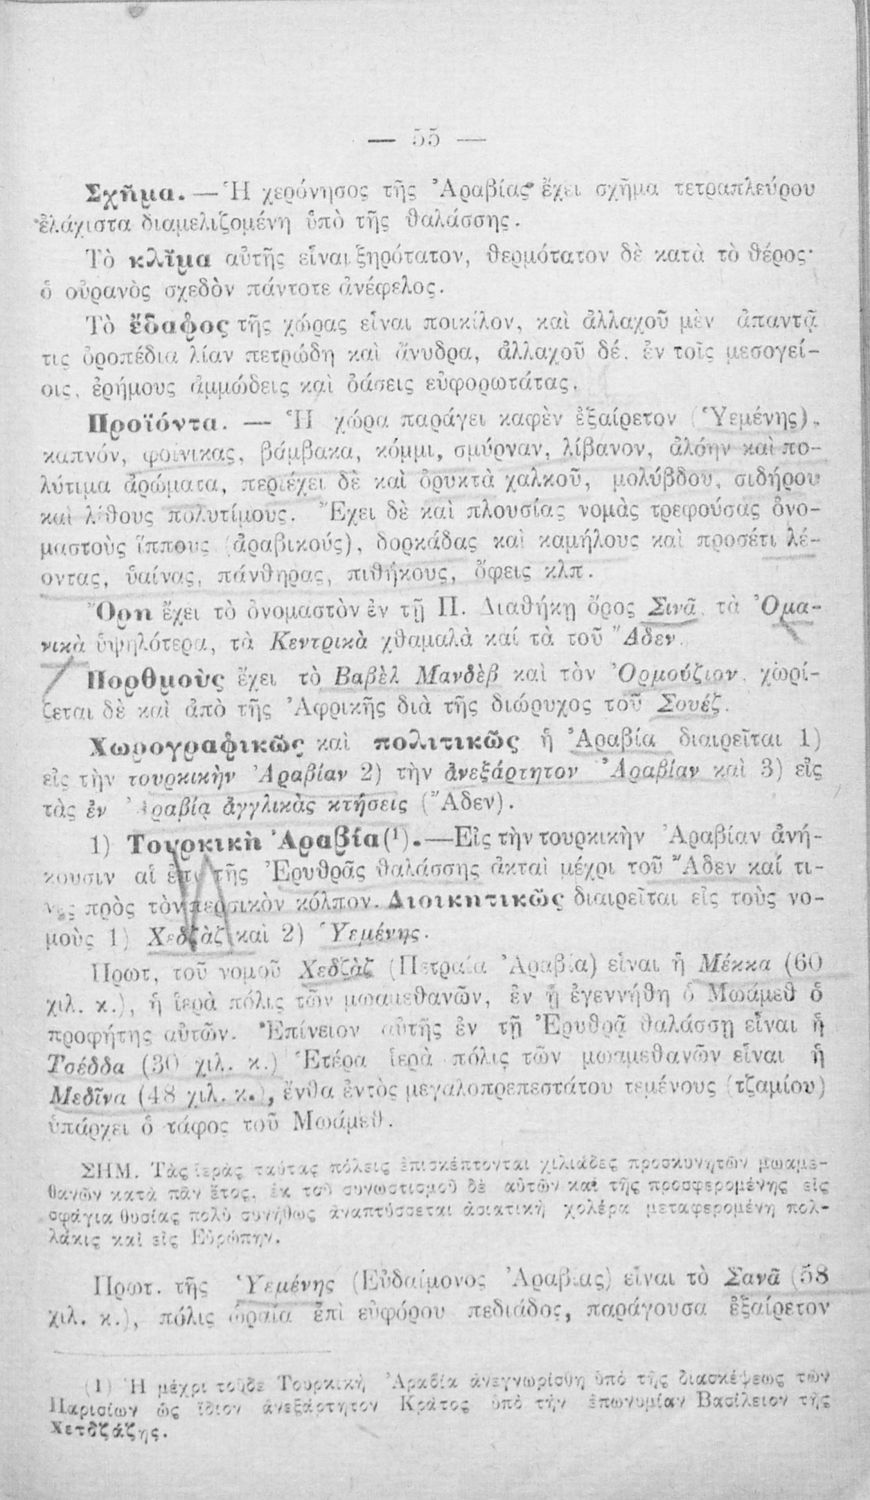 — 55 —
Σχῆμα. — Ἡ χερόνησος τῆς Ἀραβίας ἔχει σχῆμα τετραπλεύρου
ἐλάχιστα διαμελιζομένη ὑπὸ τῆς θαλάσσης.
Τὸ κλῖμα αὐτῆς εἶναι ξηρότατον, θερμότατον δὲ κατὰ τὸ θέρος·
ὁ οὐρανὸς σχεδὸν πάντοτε ἀνέφελος.
Τὸ ἔδαφος τῆς χώρας εἶναι ποικίλον, καὶ ἀλλαχοῦ μὲν ἀπαντᾷ
τις ὀροπέδια λίαν πετρώδη καὶ ἄνυδρα, ἀλλαχοῦ δέ, ἐν τοῖς μεσογεί-
οις, ἐρήμους ἀμμώδεις καὶ ὀάσεις εὐφορωτάτας.
Προϊόντα. — Ἡ χώρα παράγει καφὲν ἐξαίρετον (Ὑεμένης),
καπνόν, φοίνικας, βάμβακα, κόμμι, σμύρναν, λίβανον, ἀλόην καὶ πο-
λύτιμα ἀρώματα, περιέχει δὲ καὶ ὀρυκτὰ χαλκοῦ, μολύβδου, σιδήρου
καὶ λίθους πολυτίμους. Ἔχει δὲ καὶ πλουσίας νομὰς τρεφούσας ὀνο-
μαστοὺς ἵππους (ἀραβικούς), δορκάδας καὶ καμήλους καὶ προσέτι λέ-
οντας, ὑαίνας, πάνθηρας, πιθήκους, ὄφεις κλπ.
Ὄρη ἔχει τὸ ὀνομαστὸν ἐν τῇ Π. Διαθήκῃ ὄρος Σινᾶ, τὰ Ὀμα-
νικὰ ὑψηλότερα, τὰ Κεντρικὰ χθαμαλὰ καὶ τὰ τοῦ Ἄδεν.
Πορθμοὺς ἔχει τὸ Βαβὲλ Μανδὲβ καὶ τὸν Ὀρμούζιον, χωρί-
ζεται δὲ καὶ ἀπὸ τῆς Ἀφρικῆς διὰ τῆς διώρυχος τοῦ Σουέζ.
Χωρογραφικῶς καὶ πολιτικῶς ἡ Ἀραβία διαιρεῖται 1)
εἰς τὴν τουρκικὴν Ἀραβίαν 2) τὴν ἀνεξάρτητον Ἀραβίαν καὶ 3) εἰς
τὰς ἐν Ἀραβίᾳ ἀγγλικὰς κτήσεις (Ἄδεν).
1) Τουρκικὴ Ἀραβία(¹).—Εἰς τὴν τουρκικὴν Ἀραβίαν ἀνή-
κουσιν αἱ ἐπὶ τῆς Ἐρυθρᾶς θαλάσσης ἀκταὶ μέχρι τοῦ Ἄδεν καί τι-
νες πρὸς τὸν περσικὸν κόλπον. Διοικητικῶς διαιρεῖται εἰς τοὺς νο-
μοὺς 1) Χεδζὰζ καὶ 2) Ὑεμένης.
Πρωτ. τοῦ νομοῦ Χεδζὰζ (Πετραία Ἀραβία) εἶναι ἡ Μέκκα (60
χιλ. κ.), ἡ ἱερὰ πόλις τῶν μωαμεθανῶν, ἐν ᾗ ἐγεννήθη ὁ Μωάμεθ ὁ
προφήτης αὐτῶν. Ἐπίνειον αὐτῆς ἐν τῇ Ἐρυθρᾷ θαλάσσῃ εἶναι ἡ
Τσέδδα (30 χιλ. κ.) Ἑτέρα ἱερὰ πόλις τῶν μωαμεθανῶν εἶναι ἡ
Μεδῖνα (48 χιλ. κ.), ἔνθα ἐντὸς μεγαλοπρεπεστάτου τεμένους (τζαμίου)
ὑπάρχει ὁ τάφος τοῦ Μωάμεθ.
ΣΗΜ. Τὰς ἱερὰς ταύτας πόλεις ἐπισκέπτονται χιλιάδες προσκυνητῶν μωαμε-
θανῶν κατὰ πᾶν ἔτος, ἐκ τοῦ συνωστισμοῦ δὲ αὐτῶν καὶ τῆς προσφερομένης εἰς
σφάγια θυσίας πολὺ συνήθως ἀναπτύσσεται ἀσιατικὴ χολέρα μεταφερομένη πολ-
λάκις καὶ εἰς Εὐρώπην.
Πρωτ. τῆς Ὑεμένης (Εὐδαίμονος Ἀραβίας) εἶναι τὸ Σανᾶ (58
χιλ. κ.), πόλις ὡραία ἐπὶ εὐφόρου πεδιάδος, παράγουσα ἐξαίρετον
(1) Ἡ μέχρι τοῦδε Τουρκικὴ Ἀραβία ἀνεγνωρίσθη ὑπὸ τῆς διασκέψεως τῶν
Παρισίων ὡς ἴδιον ἀνεξάρτητον Κράτος ὑπὸ τὴν ἐπωνυμίαν Βασίλειον τῆς
Χετδζάζης.